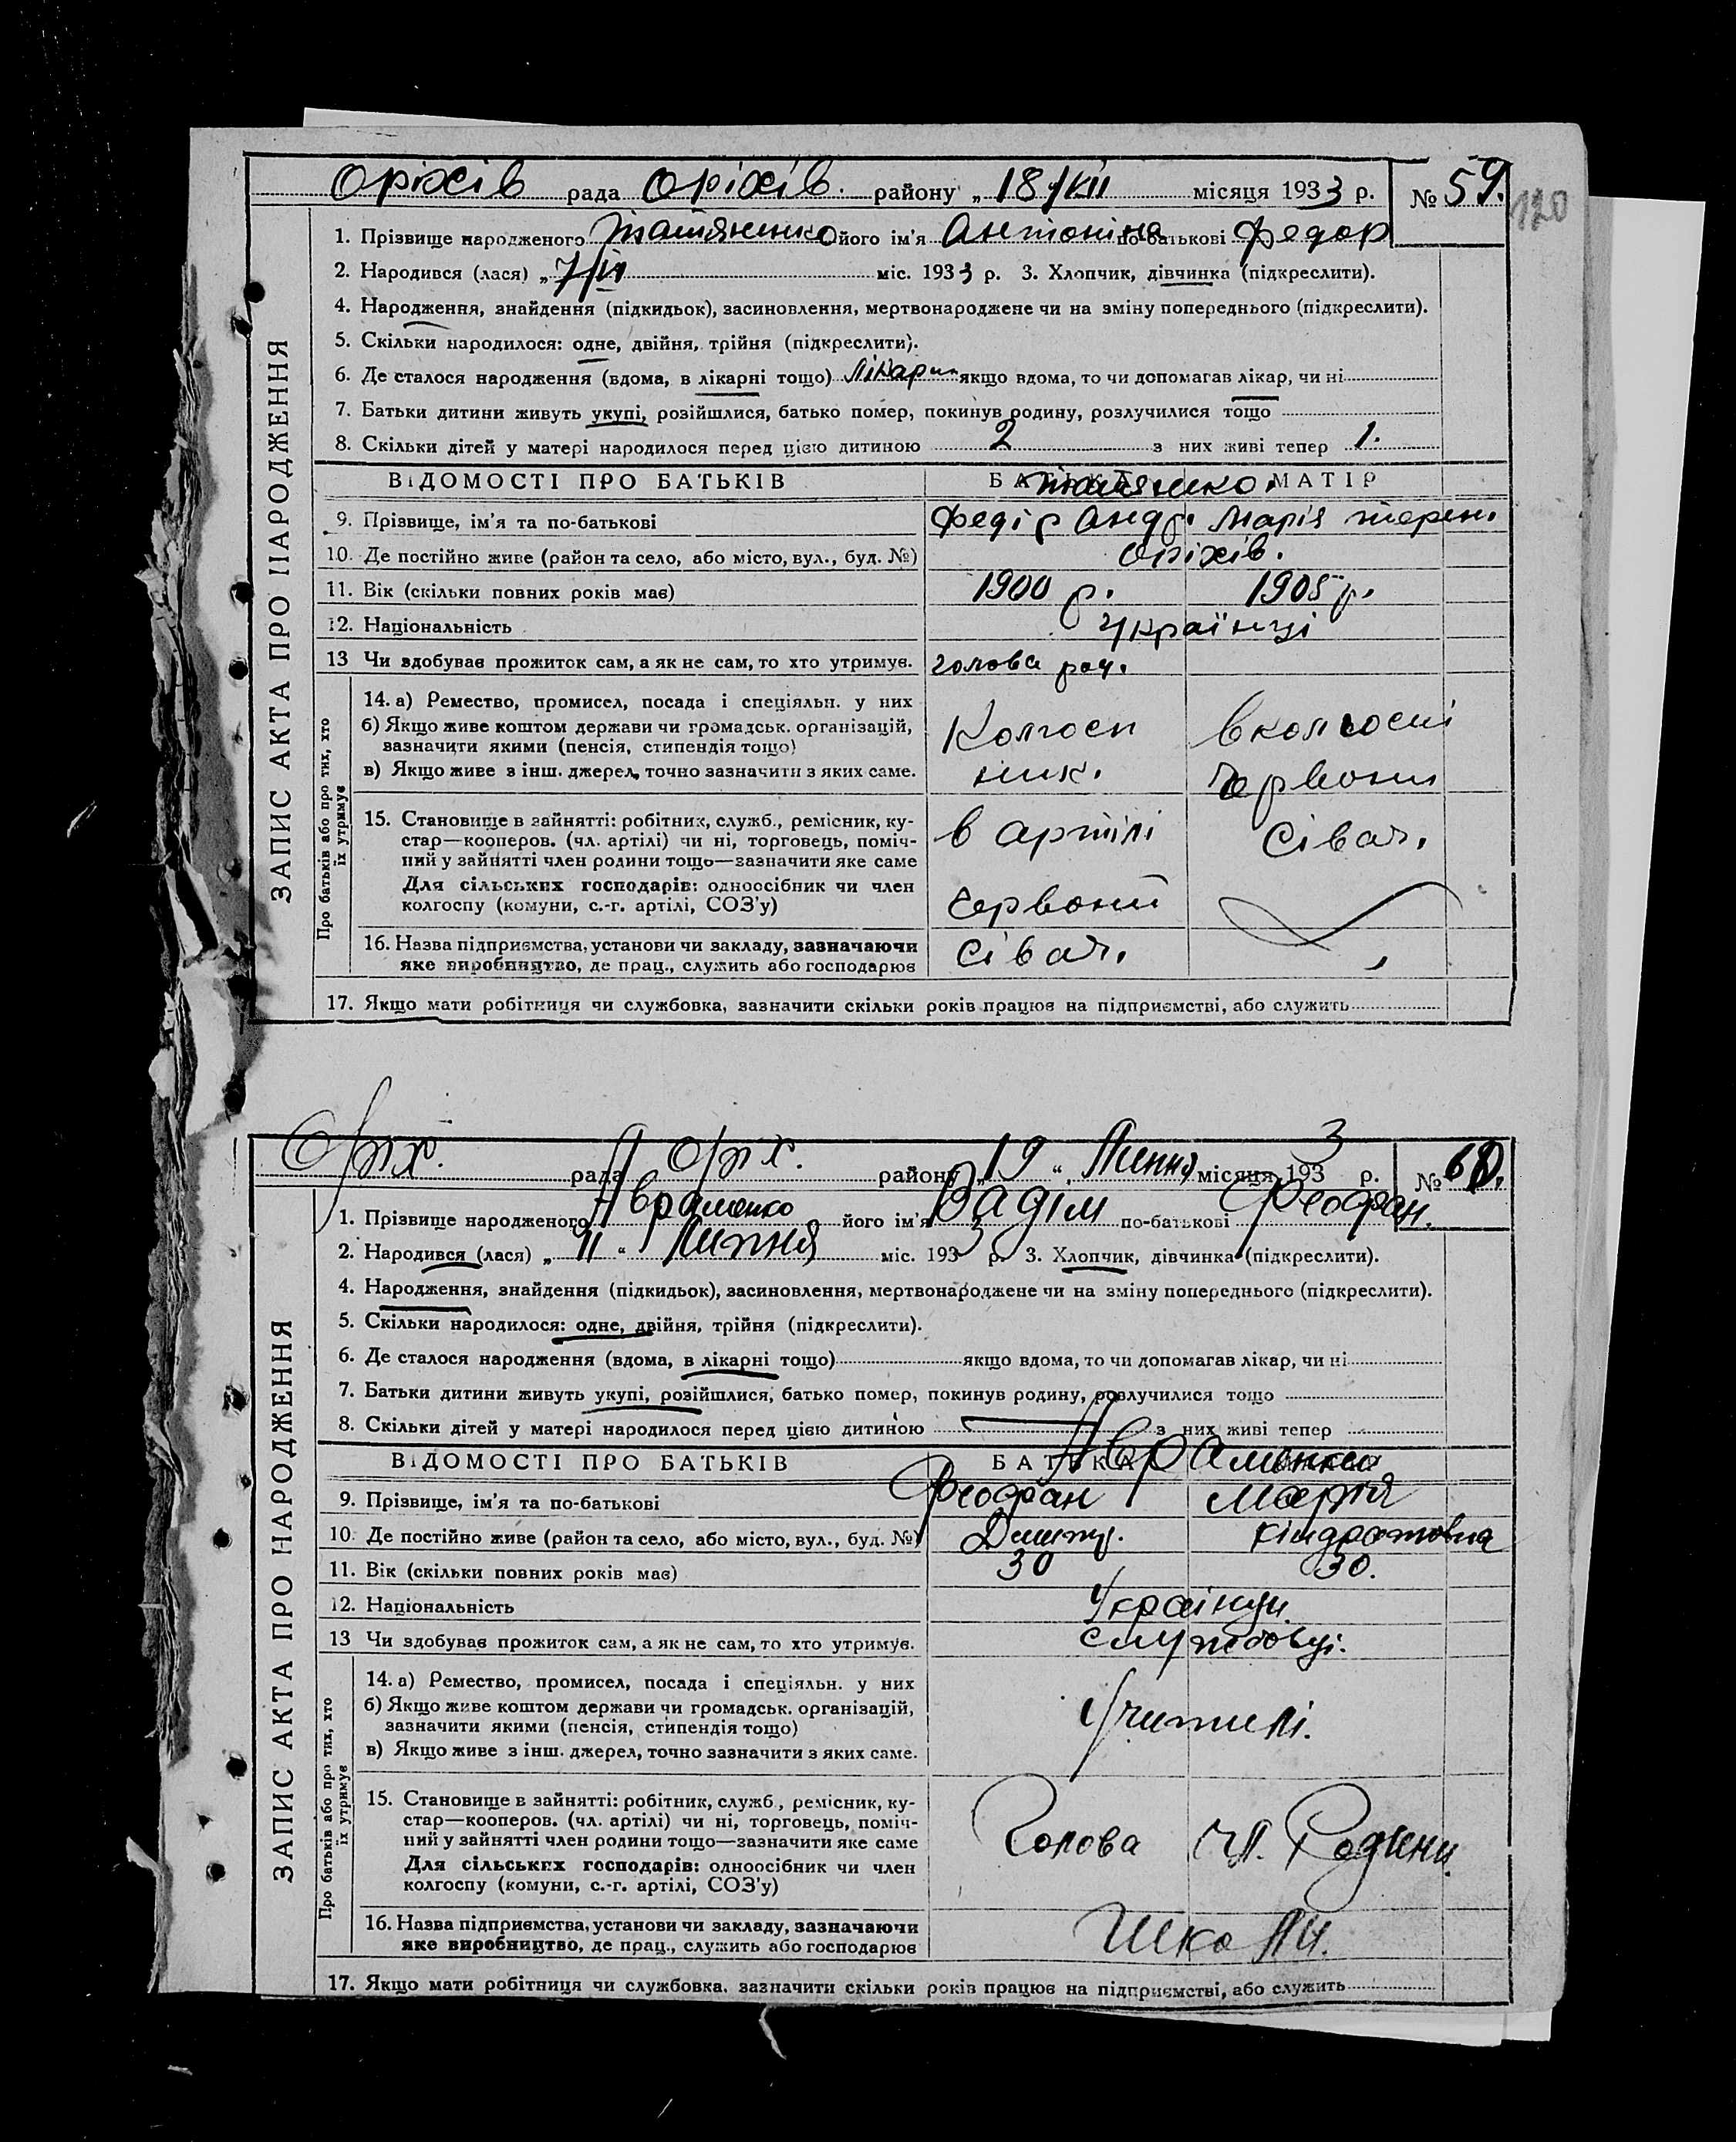 Оріхів рада Оріхів. району „ 18/VII місяця 1933 р. № 59.
120
1. Прізвище народженого Татяненко його ім'я Антоніна по-батькові Федор
2. Народився (лася) „ 7/VI міс. 1933 р. 3. Хлопчик, дівчинка (підкреслити).
4. Народження, знайдення (підкидьок), засиновлення, мертвонароджене чи на зміну попереднього (підкреслити).
5. Скільки народилося: одне, двійня, трійня (підкреслити).
6. Де сталося народження (вдома, в лікарні тощо) якщо вдома, то чи допомагав лікар, чи ні
7. Батьки дитини живуть укупі, розійшлися, батько помер, покинув родину, розлучилися тощо
8. Скільки дітей у матері народилося перед цією дитиною 2 з них живі тепер 1.
ВІДОМОСТІ ПРО БАТЬКІВ БАТЬКА МАТІР
9. Прізвище, ім'я та по-батькові Федір Андр. Марія терен.
10. Де постійно живе (район та село, або місто, вул., буд. №) Оріхів.
11. Вік (скільки повних років має) 1900 р. 1905 р.
12. Національність Українці
13 Чи здобуває прожиток сам, а як не сам, то хто утримує. голова род.
14. а) Ремество, промисел, посада і спеціяльн. у них
б) Якщо живе коштом держави чи громадськ. організацій, Колгосп вколгоспі
зазначити якими (пенсія, стипендія тощо)
в) Якщо живе з інш. джерел, точно зазначити з яких саме. ник. Червони
15. Становище в зайнятті: робітник, служб., ремісник, ку-
стар—кооперов. (чл. артілі) чи ні, торговець, поміч- в артілі Сівач.
ний у зайнятті член родини тощо—зазначити яке саме
Для сільських господарів: одноосібник чи член
колгоспу (комуни, с.-г. артілі, СОЗ'у) Червоний
16. Назва підприємства, установи чи закладу, зазначаючи Сівач.
яке виробництво, де прац., служить або господарює
17. Якщо мати робітниця чи службовка, зазначити скільки років працює на підприємстві, або служить
ЗАПИС АКТА ПРО НАРОДЖЕННЯ
Про батьків або про тих, хто
їх утримує
Оріх. рада Оріх. району „ 19 “ Липня місяця 1933 р. № 60.
1. Прізвище народженого Авраменко його ім'я Вадім по-батькові Феофан.
2. Народився (лася) „ 11 “ Липня міс. 1933 р. 3. Хлопчик, дівчинка (підкреслити).
4. Народження, знайдення (підкидьок), засиновлення, мертвонароджене чи на зміну попереднього (підкреслити).
5. Скільки народилося: одне, двійня, трійня (підкреслити).
6. Де сталося народження (вдома, в лікарні тощо) якщо вдома, то чи допомагав лікар, чи ні
7. Батьки дитини живуть укупі, розійшлися, батько помер, покинув родину, розлучилися тощо
8. Скільки дітей у матері народилося перед цією дитиною з них живі тепер
ВІДОМОСТІ ПРО БАТЬКІВ БАТЬКА Авраменки
9. Прізвище, ім'я та по-батькові Феофан Марія
10. Де постійно живе (район та село, або місто, вул., буд. №) Дмитр. Кіндратовна
11. Вік (скільки повних років має) 30 30.
12. Національність Українци.
13 Чи здобуває прожиток сам, а як не сам, то хто утримує. службовці.
14. а) Ремество, промисел, посада і спеціяльн. у них
б) Якщо живе коштом держави чи громадськ. організацій, Учителі.
зазначити якими (пенсія, стипендія тощо)
в) Якщо живе з інш. джерел, точно зазначити з яких саме.
15. Становище в зайнятті: робітник, служб., ремісник, ку-
стар—кооперов. (чл. артілі) чи ні, торговець, поміч-
ний у зайнятті член родини тощо—зазначити яке саме Голова Чл. Родини.
Для сільських господарів: одноосібник чи член
колгоспу (комуни, с.-г. артілі, СОЗ'у)
16. Назва підприємства, установи чи закладу, зазначаючи Школи.
яке виробництво, де прац., служить або господарює
17. Якщо мати робітниця чи службовка, зазначити скільки років працює на підприємстві, або служить
ЗАПИС АКТА ПРО НАРОДЖЕННЯ
Про батьків або про тих, хто
їх утримує